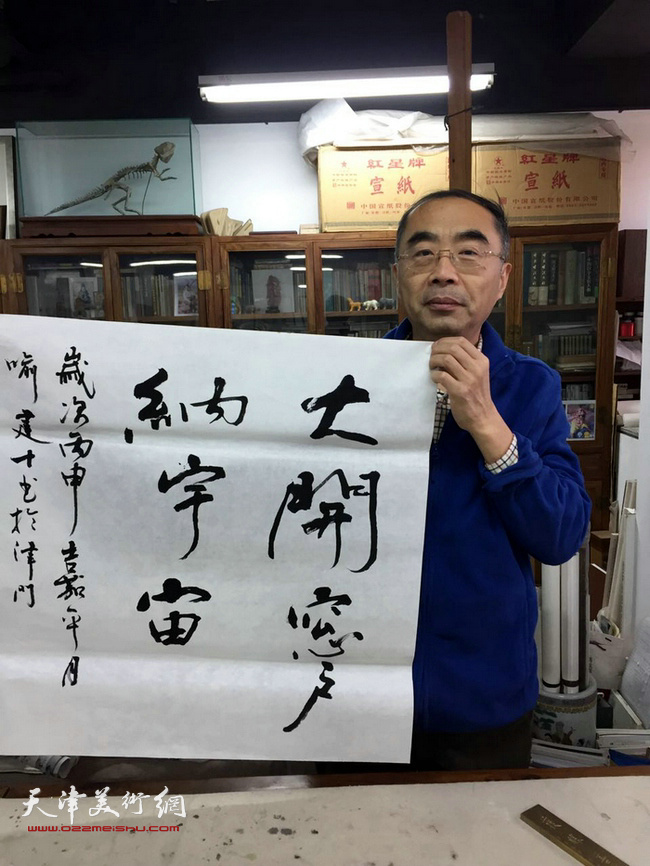 大開窓戶
納宇宙
歲次丙申嘉平月
喻建十书於津門
红星牌
宣纸
中国宣纸股份有限公司
红星牌
宣纸
中国宣纸股份有限公司
天津美術網
www.022meishu.com